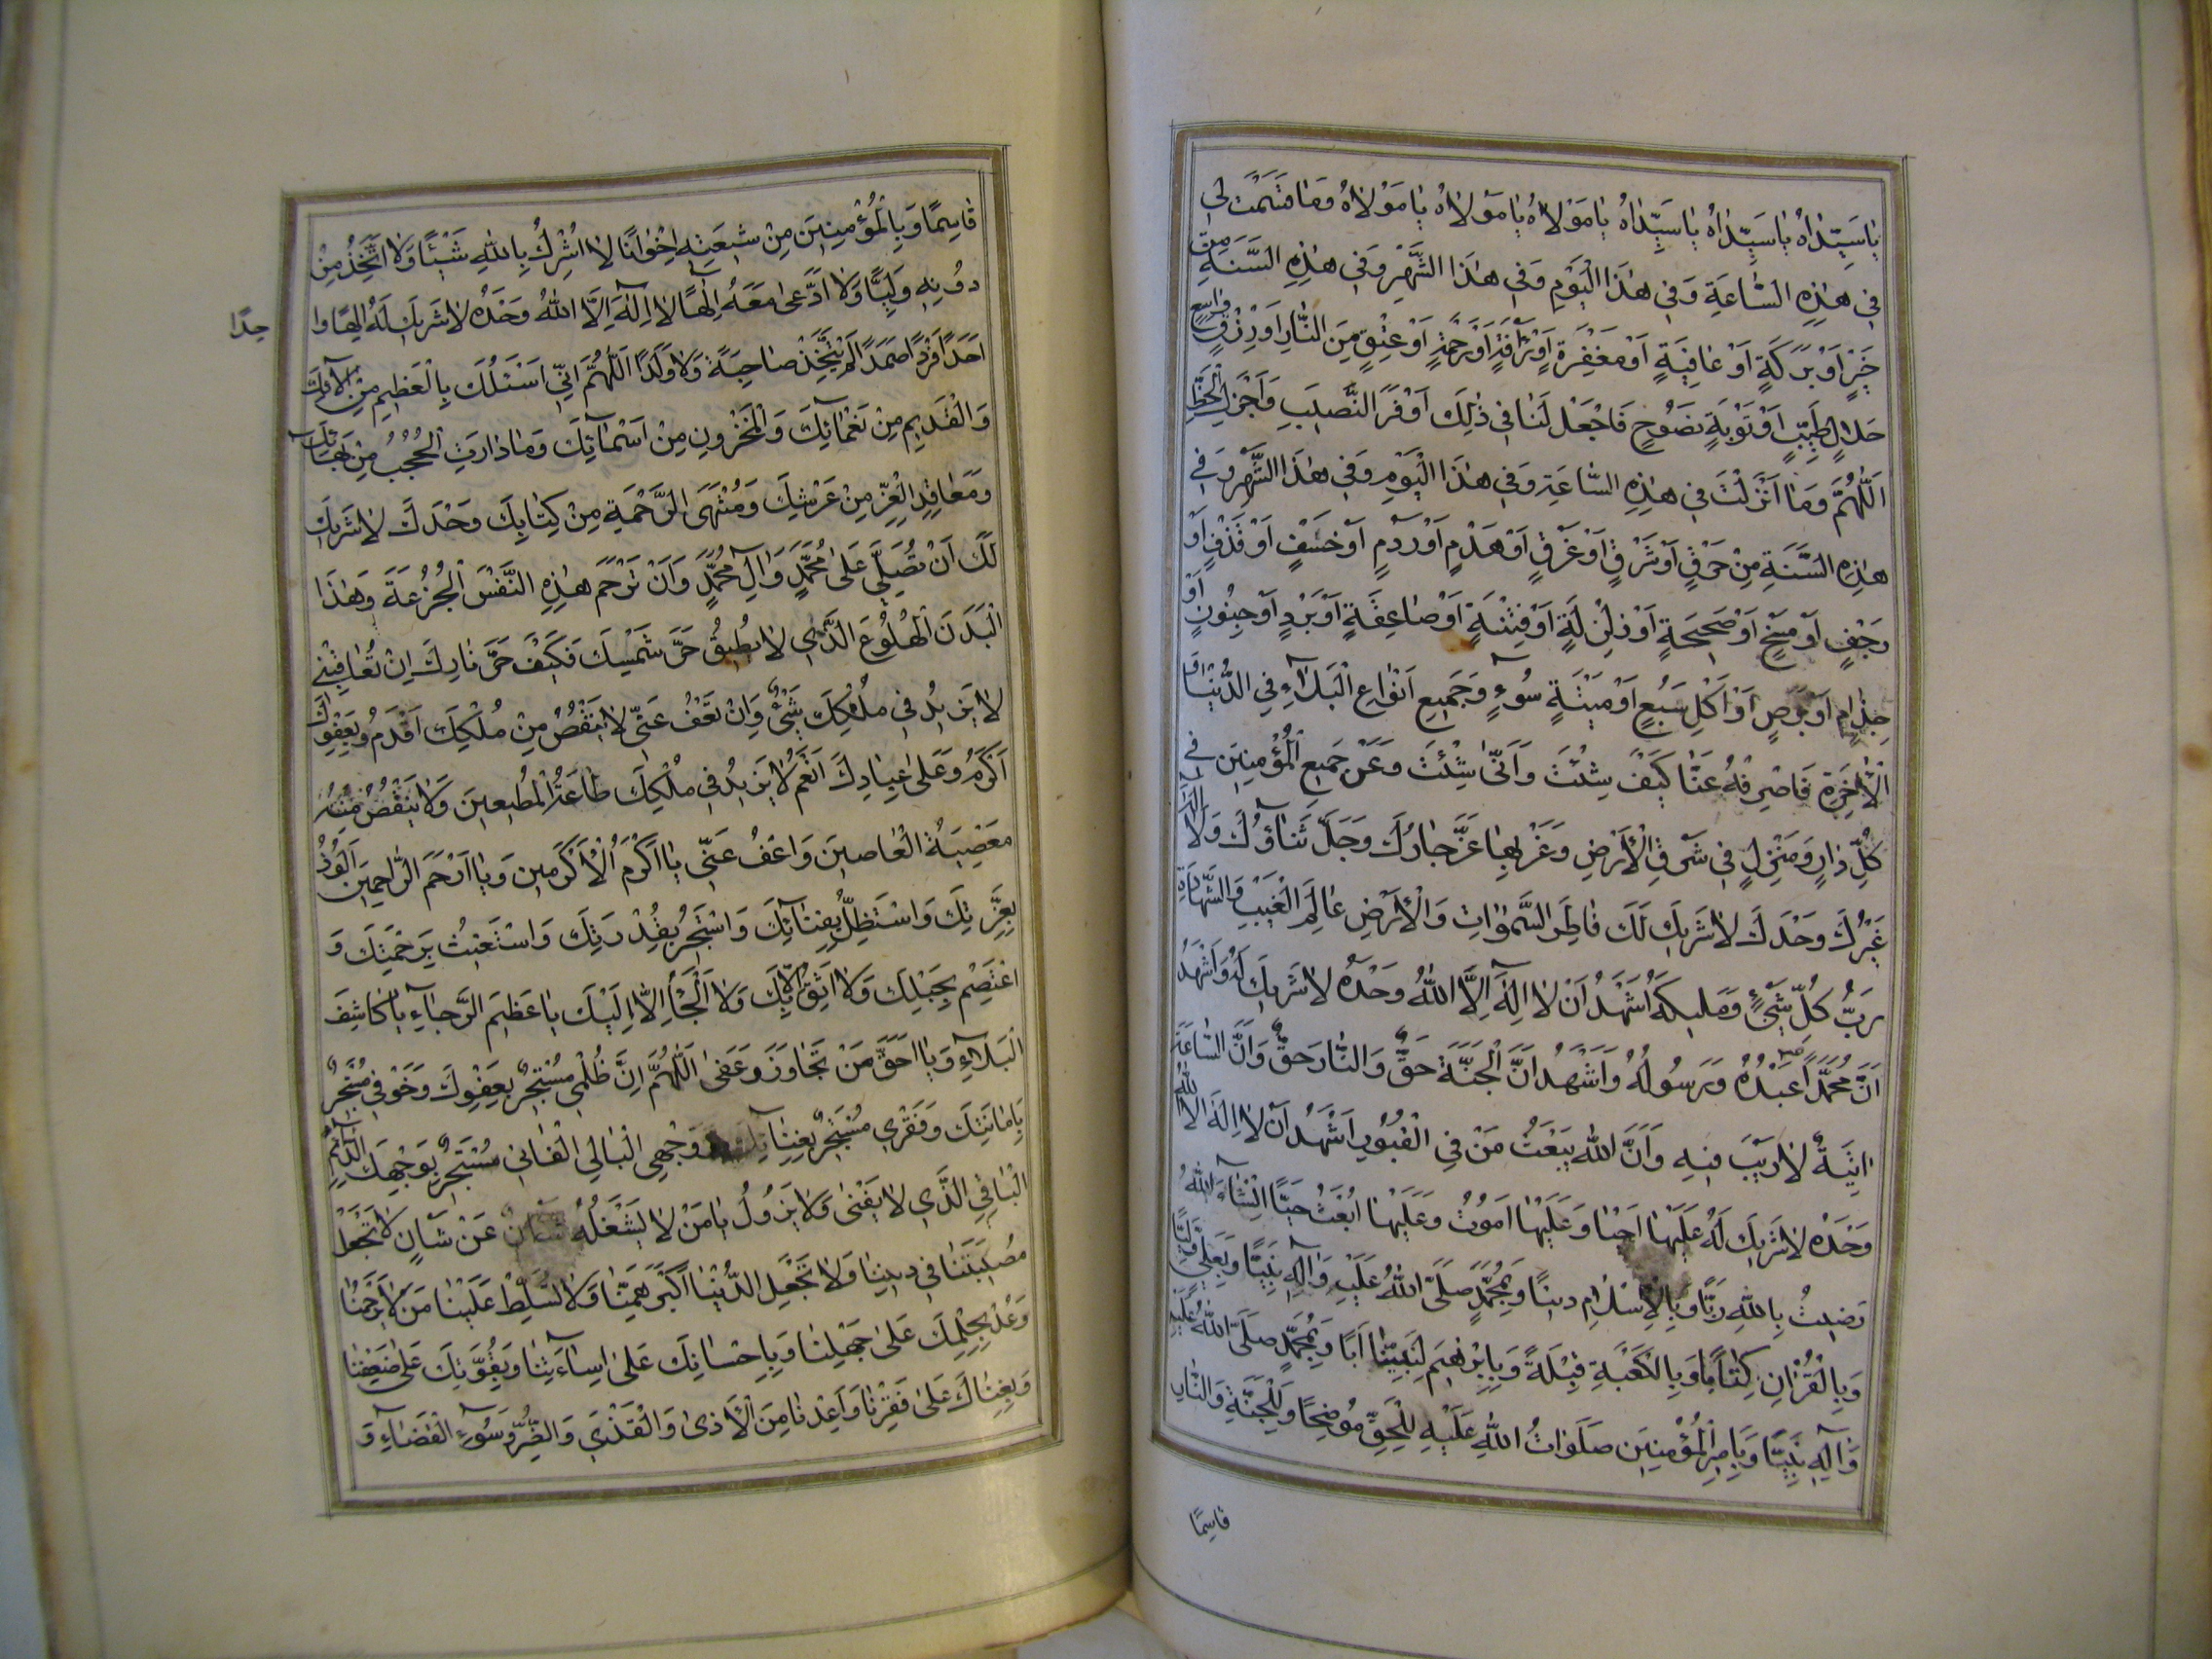 يَا سَيِّدَاهُ يَا سَيِّدَاهُ يَا سَيِّدَاهُ يَا مَوْلَاهُ يَا مَوْلَاهُ يَا مَوْلَاهُ وَمَا قَسَمْتَ لِي
فِي هٰذِهِ السَّاعَةِ وَفِي هٰذَا الْيَوْمِ وَفِي هٰذَا الشَّهْرِ وَفِي هٰذِهِ السَّنَةِ مِنْ
خَيْرٍ اَوْ بَرَكَةٍ اَوْ عَافِيَةٍ اَوْ مَغْفِرَةٍ اَوْ رَأْفَةٍ اَوْ رَحْمَةٍ اَوْ عِتْقٍ مِنَ النَّارِ اَوْ رِزْقٍ وَاسِعٍ
حَلَالٍ طَيِّبٍ اَوْ تَوْبَةٍ نَصُوحٍ فَاجْعَلْ لَنَا فِي ذٰلِكَ اَوْفَرَ النَّصِيبِ وَاَجْزَلَ الْحَظِّ
اَللّٰهُمَّ وَمَا اَنْزَلْتَ فِي هٰذِهِ السَّاعَةِ وَفِي هٰذَا الْيَوْمِ وَفِي هٰذَا الشَّهْرِ وَفِي
هٰذِهِ السَّنَةِ مِنْ حَرْقٍ اَوْ شَرْقٍ اَوْ غَرَقٍ اَوْ هَدْمٍ اَوْ رَدْمٍ اَوْ خَسْفٍ اَوْ قَذْفٍ اَوْ
رَجْفٍ اَوْ مَسْخٍ اَوْ صَيْحَةٍ اَوْ زَلْزَلَةٍ اَوْ فِتْنَةٍ اَوْ صَاعِقَةٍ اَوْ بَرَدٍ اَوْ جُنُونٍ اَوْ
جُذَامٍ اَوْ بَرَصٍ اَوْ اَكْلِ سَبُعٍ اَوْ مِيتَةِ سُوءٍ وَجَمِيعِ اَنْوَاعِ الْبَلَاءِ فِي الدُّنْيَا وَ
الْاٰخِرَةِ فَاصْرِفْهُ عَنَّا كَيْفَ شِئْتَ وَاَنّٰى شِئْتَ وَعَنْ جَمِيعِ الْمُؤْمِنِينَ فِي
كُلِّ دَارٍ وَمَنْزِلٍ فِي شَرْقِ الْاَرْضِ وَغَرْبِهَا عَزَّ جَارُكَ وَجَلَّ ثَنَاؤُكَ وَلَا اِلٰهَ
غَيْرُكَ وَحْدَكَ لَا شَرِيكَ لَكَ فَاطِرَ السَّمٰوَاتِ وَالْاَرْضِ عَالِمَ الْغَيْبِ وَالشَّهَادَةِ
رَبُّ كُلِّ شَيْءٍ وَمَلِيكَهُ اَشْهَدُ اَنْ لَا اِلٰهَ اِلَّا اللّٰهُ وَحْدَهُ لَا شَرِيكَ لَهُ وَاَشْهَدُ
اَنَّ مُحَمَّدًا عَبْدُهُ وَرَسُولُهُ وَاَشْهَدُ اَنَّ الْجَنَّةَ حَقٌّ وَالنَّارَ حَقٌّ وَاَنَّ السَّاعَةَ
اٰتِيَةٌ لَا رَيْبَ فِيهِ وَاَنَّ اللّٰهَ يَبْعَثُ مَنْ فِي الْقُبُورِ اَشْهَدُ اَنْ لَا اِلٰهَ اِلَّا اللّٰهُ
وَحْدَهُ لَا شَرِيكَ لَهُ عَلَيْهَا اَحْيَا وَعَلَيْهَا اَمُوتُ وَعَلَيْهَا اُبْعَثُ حَيًّا اِنْشَاءَ اللّٰهُ
رَضِيتُ بِاللّٰهِ رَبًّا وَبِالْاِسْلَامِ دِينًا وَبِمُحَمَّدٍ صَلَّى اللّٰهُ عَلَيْهِ وَاٰلِهِ نَبِيًّا وَبِعَلِيٍّ وَلِيًّا
وَبِالْقُرْاٰنِ كِتَابًا وَبِالْكَعْبَةِ قِبْلَةً وَبِاِبْرٰهِيمَ لِنَبِيِّنَا اَبًا وَبِمُحَمَّدٍ صَلَّى اللّٰهُ عَلَيْهِ
وَاٰلِهِ نَبِيًّا وَبِاَمِيرِ الْمُؤْمِنِينَ صَلَوَاتُ اللّٰهِ عَلَيْهِ لِلْحَقِّ مُوضِحًا وَلِلْجَنَّةِ وَالنَّارِ
قَاسِمًا
قَاسِمًا وَبِالْمُؤْمِنِينَ مِنْ شِيعَتِهِ اِخْوَانًا لَا اُشْرِكُ بِاللّٰهِ شَيْئًا وَلَا اَتَّخِذُ مِنْ
دُونِهِ وَلِيًّا وَلَا اَدَّعِي مَعَهُ اِلٰهًا لَا اِلٰهَ اِلَّا اللّٰهُ وَحْدَهُ لَا شَرِيكَ لَهُ اِلٰهًا وا
حدًا
اَحَدًا فَرْدًا صَمَدًا لَمْ يَتَّخِذْ صَاحِبَةً وَلَا وَلَدًا اَللّٰهُمَّ اِنِّي اَسْئَلُكَ بِالْعَظِيمِ مِنْ اٰلَائِكَ
وَالْقَدِيمِ مِنْ نَعْمَائِكَ وَالْمَخْزُونِ مِنْ اَسْمَائِكَ وَمَا وَارَتِ الْحُجُبُ مِنْ بَهَائِكَ
وَمَعَاقِدِ الْعِزِّ مِنْ عَرْشِكَ وَمُنْتَهَى الرَّحْمَةِ مِنْ كِتَابِكَ وَحْدَكَ لَا شَرِيكَ
لَكَ اَنْ تُصَلِّيَ عَلٰى مُحَمَّدٍ وَاٰلِ مُحَمَّدٍ وَاَنْ تَرْحَمَ هٰذِهِ النَّفْسَ الْجَزُوعَةَ وَهٰذَا
الْبَدَنَ الْهَلُوعَ الَّذِي لَا يُطِيقُ حَرَّ شَمْسِكَ فَكَيْفَ حَرَّ نَارِكَ اِنْ تُعَاقِبْنِي
لَا يَزِيدُ فِي مُلْكِكَ شَيْءٌ وَاِنْ تَعْفُ عَنِّي لَا يَنْقُصُ مِنْ مُلْكِكَ اَقْدَمُ وَبِعَفْوِكَ
اَكْرَمُ وَعَلٰى عِبَادِكَ اَنْعَمُ لَا يَزِيدُ فِي مُلْكِكَ طَاعَةُ الْمُطِيعِينَ وَلَا يَنْقُصُ مِنْهُ
مَعْصِيَةُ الْعَاصِينَ وَاعْفُ عَنِّي يَا اَكْرَمَ الْاَكْرَمِينَ وَيَا اَرْحَمَ الرَّاحِمِينَ اَلُوذُ
بِعِزَّتِكَ وَاَسْتَظِلُّ بِفِنَائِكَ وَاَسْتَجِيرُ بِقُدْرَتِكَ وَاسْتَغِيثُ بِرَحْمَتِكَ وَ
اَعْتَصِمُ بِحَبْلِكَ وَلَا اَثِقُ اِلَّا بِكَ وَلَا اَلْجَأُ اِلَّا اِلَيْكَ يَا عَظِيمَ الرَّجَاءِ يَا كَاشِفَ
الْبَلَاءِ وَيَا اَحَقَّ مَنْ تَجَاوَزَ وَعَفٰى اَللّٰهُمَّ اِنَّ ظُلْمِي مُسْتَجِيرٌ بِعَفْوِكَ وَخَوْفِي مُسْتَجِيرٌ
بِاَمَانَتِكَ وَفَقْرِي مُسْتَجِيرٌ بِغِنَائِكَ وَوَجْهِيَ الْبَالِي الْفَانِي مُسْتَجِيرٌ بِوَجْهِكَ الدَّائِمِ
الْبَاقِي الَّذِي لَا يَفْنٰى وَلَا يَزُولُ يَا مَنْ لَا يَشْغَلُهُ شَانٌ عَنْ شَانٍ لَا تَجْعَلْ
مُصِيبَتَنَا فِي دِينِنَا وَلَا تَجْعَلِ الدُّنْيَا اَكْبَرَ هَمِّنَا وَلَا تُسَلِّطْ عَلَيْنَا مَنْ لَا يَرْحَمُنَا
وَعُدْ بِحِلْمِكَ عَلٰى جَهْلِنَا وَبِاِحْسَانِكَ عَلٰى اِسَاءَتِنَا وَبِقُوَّتِكَ عَلٰى ضَعْفِنَا
وَبِغِنَاكَ عَلٰى فَقْرِنَا وَاَعِذْنَا مِنَ الْاَذٰى وَالْقَذٰى وَالضُّرِّ وَسُوءِ الْقَضَاءِ وَ